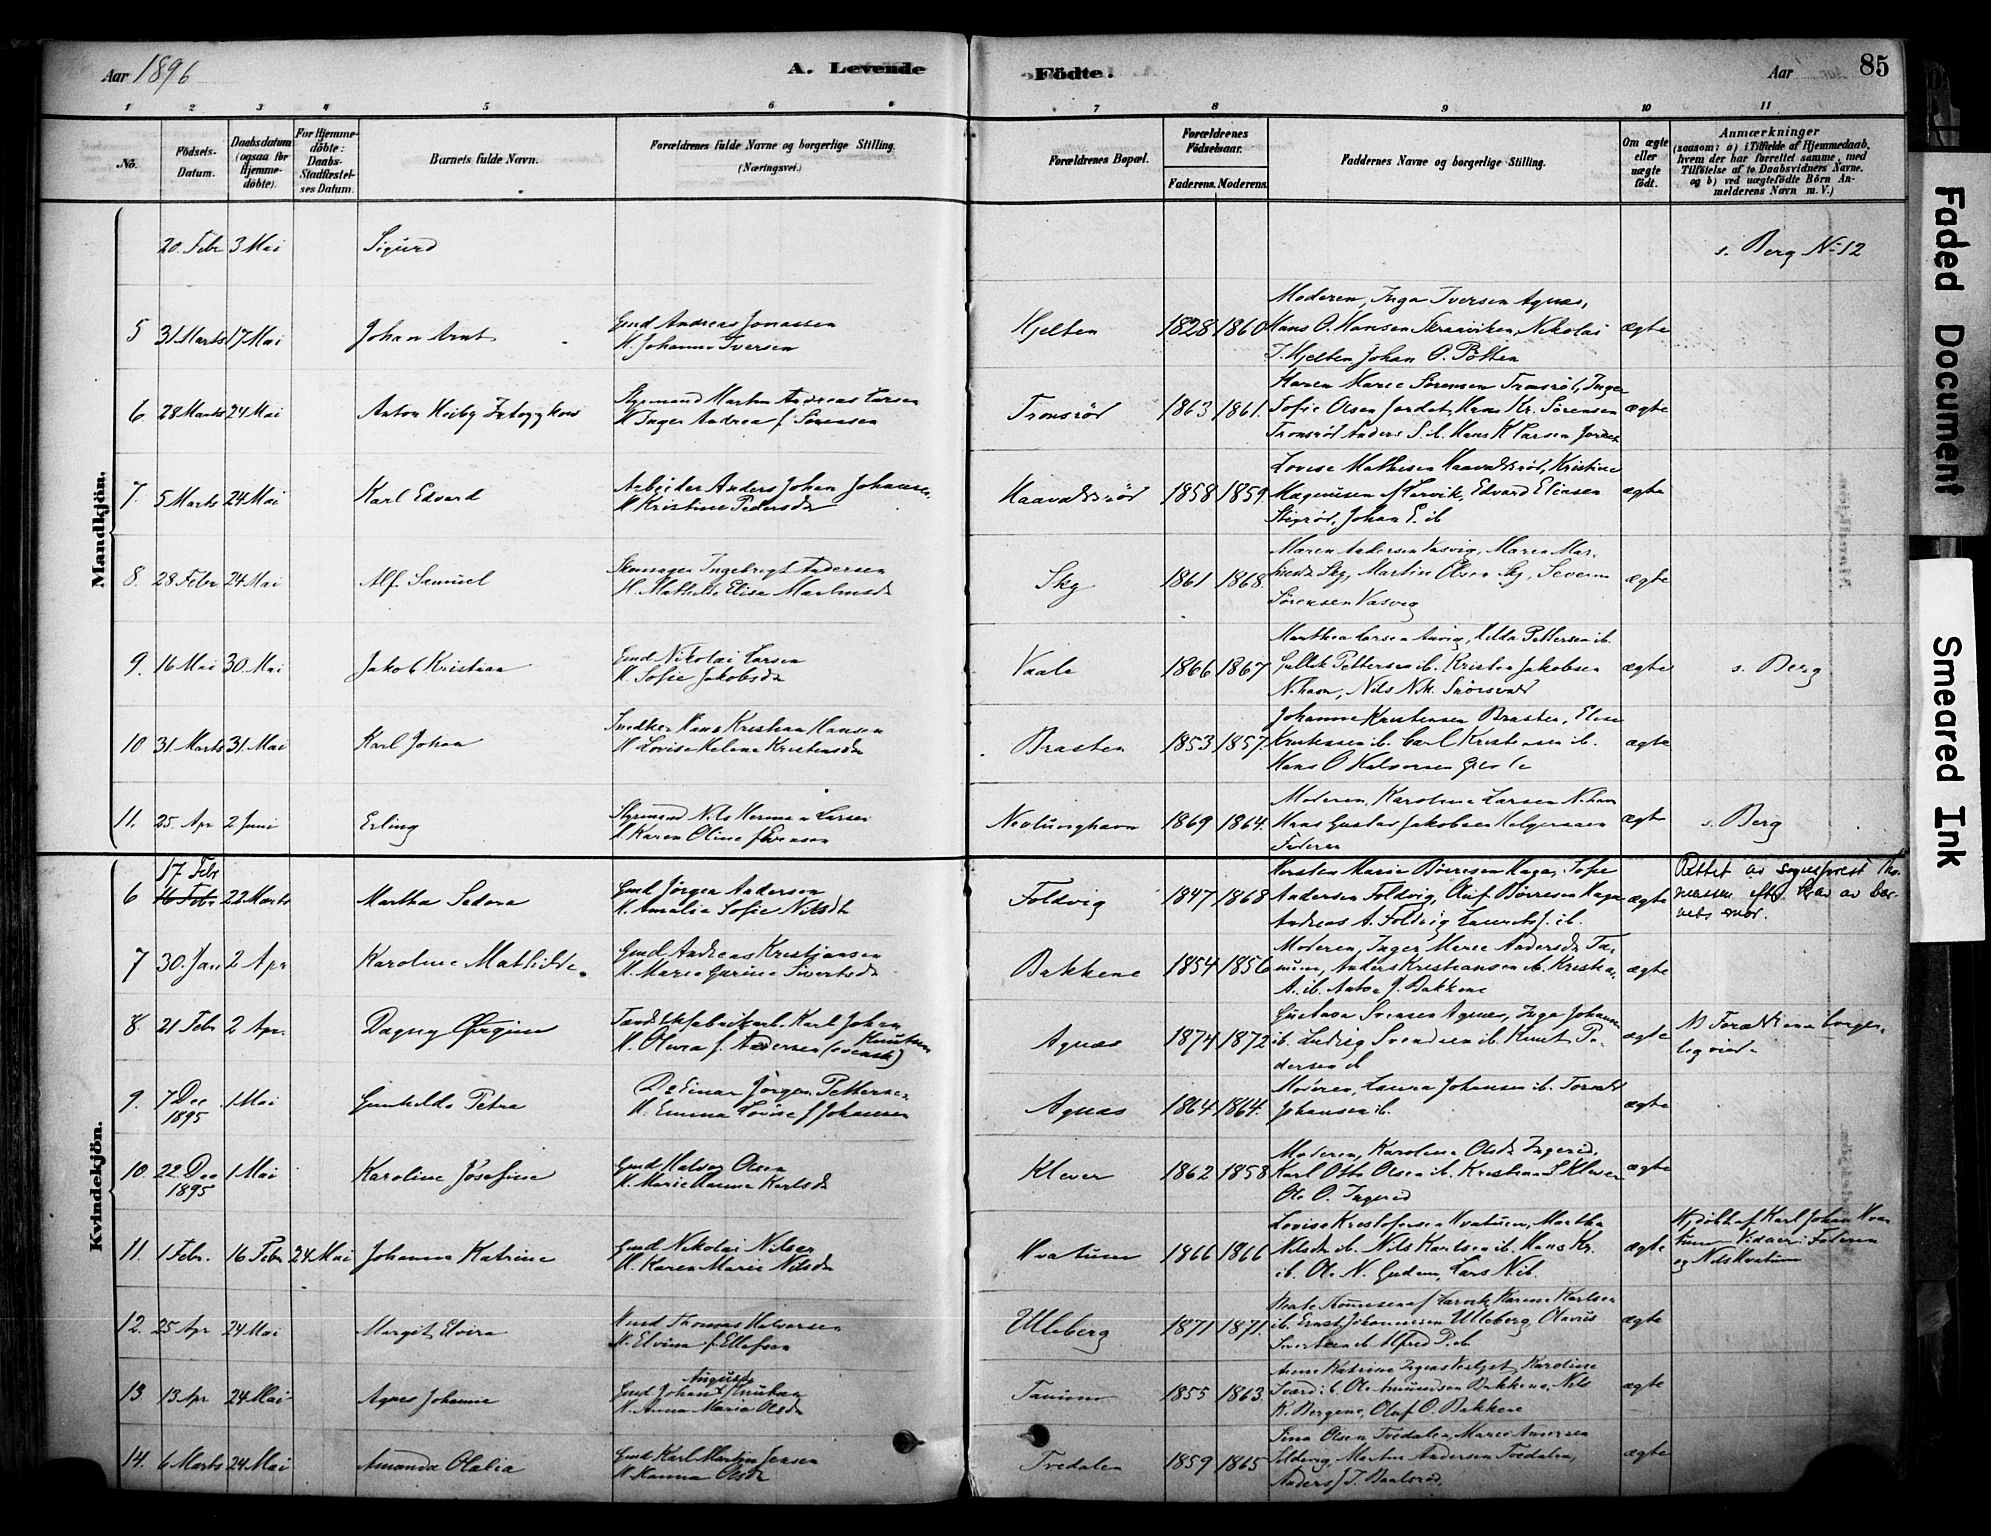 Aar 1896
A. Levende Födte.
Aar
85
1 2 3 4 5 6 6 7 8 9 10 11
No.
Födsels-Datum.
Daabsdatum (ogsaa for Hjemme-döbte).
For Hjemme-döbte: Daabs-Stadfæstel-ses Datum.
Barnets fulde Navn.
Forældrenes fulde Navne og borgerlige Stilling. (Næringsvei.)
Forældrenes Bopæl.
Forældrenes Födselsaar.
Faderens. Moderens.
Faddernes Navne og borgerlige Stilling.
Om ægte eller uægte födt.
Anmærkninger
(saasom: a) i Tilfælde af Hjemmedaab, hvem der har forrettet samme, med Tilföielse af to Daabsvidners Navne, og b) ved uægtefödte Börn An-melderens Navn m. V.)
Mandkjön.
20. Febr 3 Mai Sigurd s. Berg No 12
5 31 Marts 17 Mai Johan Arnt
Gmd Andreas Jonassen
H. Johanne Iversen
Hjelten 1828 1860
Moderen, Inga Iversen Agnæs,
Hans O. Hansen Nikolai
Hjelten Johan O.
ægte
6. 28 Marts 24 Mai Anton
Styrmand Martin Andreas Larsen
H. Inger Andrea f. Sørensen
Tronsrød 1863 1861.
Maren Marie Sørensen Tronsrød, Inger
Sofie Olsen Jordet, Hans Kr. Sørensen
Tronsrød Anders S. ib. Hans K Larsen Jordet
ægte
7. 5 Marts 24 Mai Karl Edvard
Arbeider Anders Johan Johansen
H. Kristine Pedersdt
Haavaldsrød 1858 1859.
Lovise Mathisen Haavaldsrød, Kristine
Magnusen Larvik, Edvard Eliasen
Johan E. ib
ægte
8. 28 Febr 24 Mai Alf Samuel
Skomager Ingebregt Andersen
H. Mathilde Elise
Sky 1861 1868.
Maren Andersen Vasvig, Maren
Sky, Martin Olsen Sky, Severin
Sørensen Vasvig
ægte
9. 16 Mai 30 Mai Jakob Kristian
Gmd Nikolai Larsen
H. Sofie Jakobsdt
Vaale 1866 1867.
Larsen Hilda Pettersen ib.
Pettersen ib. Kristen Jakobsen
N.havn, Nils
ægte
s. Berg
10 31. Marts 31. Mai Karl Johan
Snedker Hans Kristian Hansen
H. Lovise Helene
Brasten 1853 1857.
Johanne Kristensen Brasten, Elise
Kristensen ib. Carl Kristensen ib.
Hans O Halvorsen
ægte
11. 25. Apr 2 Juni Erling
Styrmand Nils Herman Larsen
H. Karen Oline
Nevlunghavn 1869 1864.
Moderen, Karoline Larsen N.havn
Hans Gustav Jakobsen
Faderen
ægte
s. Berg
Kvindekjön.
17 Febr
6 16 Febr 22 Marts Martha
Gmd Jørgen Andersen
H. Amalie Sofie Nilsdt
Foldvig 1847 1868
Marie Børresen Haga, Sofie
Andersen Foldvig, Oluf Børresen Haga
Andreas A. Foldvig
ægte
Rettet av sogneprest
efter krav av bar-
nets mor.
7 30. Jan 2 Apr Karoline Mathilde
Gmd Andreas Kristiansen
H. Maren Gurine Sivertsdt
Bakkene 1854 1856
Moderen, Inger Marie Andersdt Ta-
num, Anders Kristiansen ib. Kristian
A. ib. Anton J. Bakkene
ægte
8. 21 Febr 2 Apr. Dagny
Karl Johan
Knutsen
H. Olava f. Andersen (svensk)
Agnæs 1874 1872
Gustava Svensen Agnæs, Inga Johansen
ib. Ludvig Svendsen ib. Knut Pe-
dersen ib
ægte
Forældrene borger-
lig viet.
9. 7 Dec 1895 1 Mai Gunhilda Petra
Jørgen Pettersen
H. Emma Lovise f Johansen
Agnæs 1864 1864.
Moderen, Laura Johansen ib. Torvald
Johansen ib.
ægte
10. 22. Dec 1895 1 Mai Karoline Josefine
Gmd Halvor Olsen
H. Marie Hanna Karlsdt
Klever 1862 1858
Moderen, Karoline Olsdt Ingerid,
Karl Otto Olsen ib. Kristian Klever
Ole O. Ingerid
ægte
11. 1 Febr. 16 Febr 24 Mai Johanna Katrine
Gmd Nikolai Nilsen
H. Karen Marie Nilsdt
Hvatum 1866 1866
Lovise Kristofersen Hvatum, Martha
Nilsdt ib. Nils Karlsen ib. Hans Kr.
ib. Ole N. Lars N ib.
ægte
Hj.døbt af Karl Johan Hva-
tum Vidner: Faderen
og Nils Hvatum
12. 25 Apr 24 Mai Margit Elvira
Thomas Halvorsen
H. Elvina f. Ellefsen
Ulleberg 1871 1871.
Larvik, Karen Karlsen
ib. Ernst Johannesen Ulleberg, Olavus
Sivertsen ib. Alfred P. ib.
ægte
13. 13 Apr 24 Mai Agnes Johanne
August
Gmd Johan Knutsen
H. Anna Maria Olsdt
Tanum 1855 1863.
Anne Katrine Karoline
ib. Ole Amundsen Bakkene, Nils
K. Bergene, Oluf O. Bakkene
ægte
14. 6 Marts 24 Mai Amanda Olalia
Gmd Karl Martin Jensen
H. Hanna Olsdt
Tvedalen 1859 1865
Sina Olsen Tvedalen, Maren Andersen
Martin Andersen Tvedalen,
Anders J. T.
ægte
Faded Document
Smeared Ink